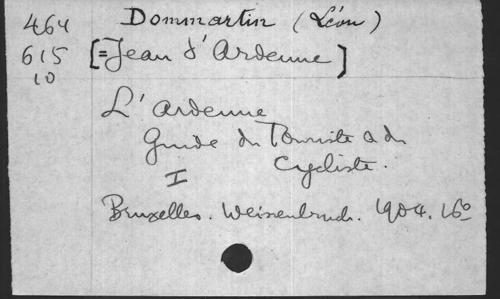 464 Dommartin (Léon)
615 [=Jean d'Ardenne]
10
L'Ardenne
Guide du Touriste & du
Cycliste.
I
Bruxelles. Weissenbruch. 1904. 16o